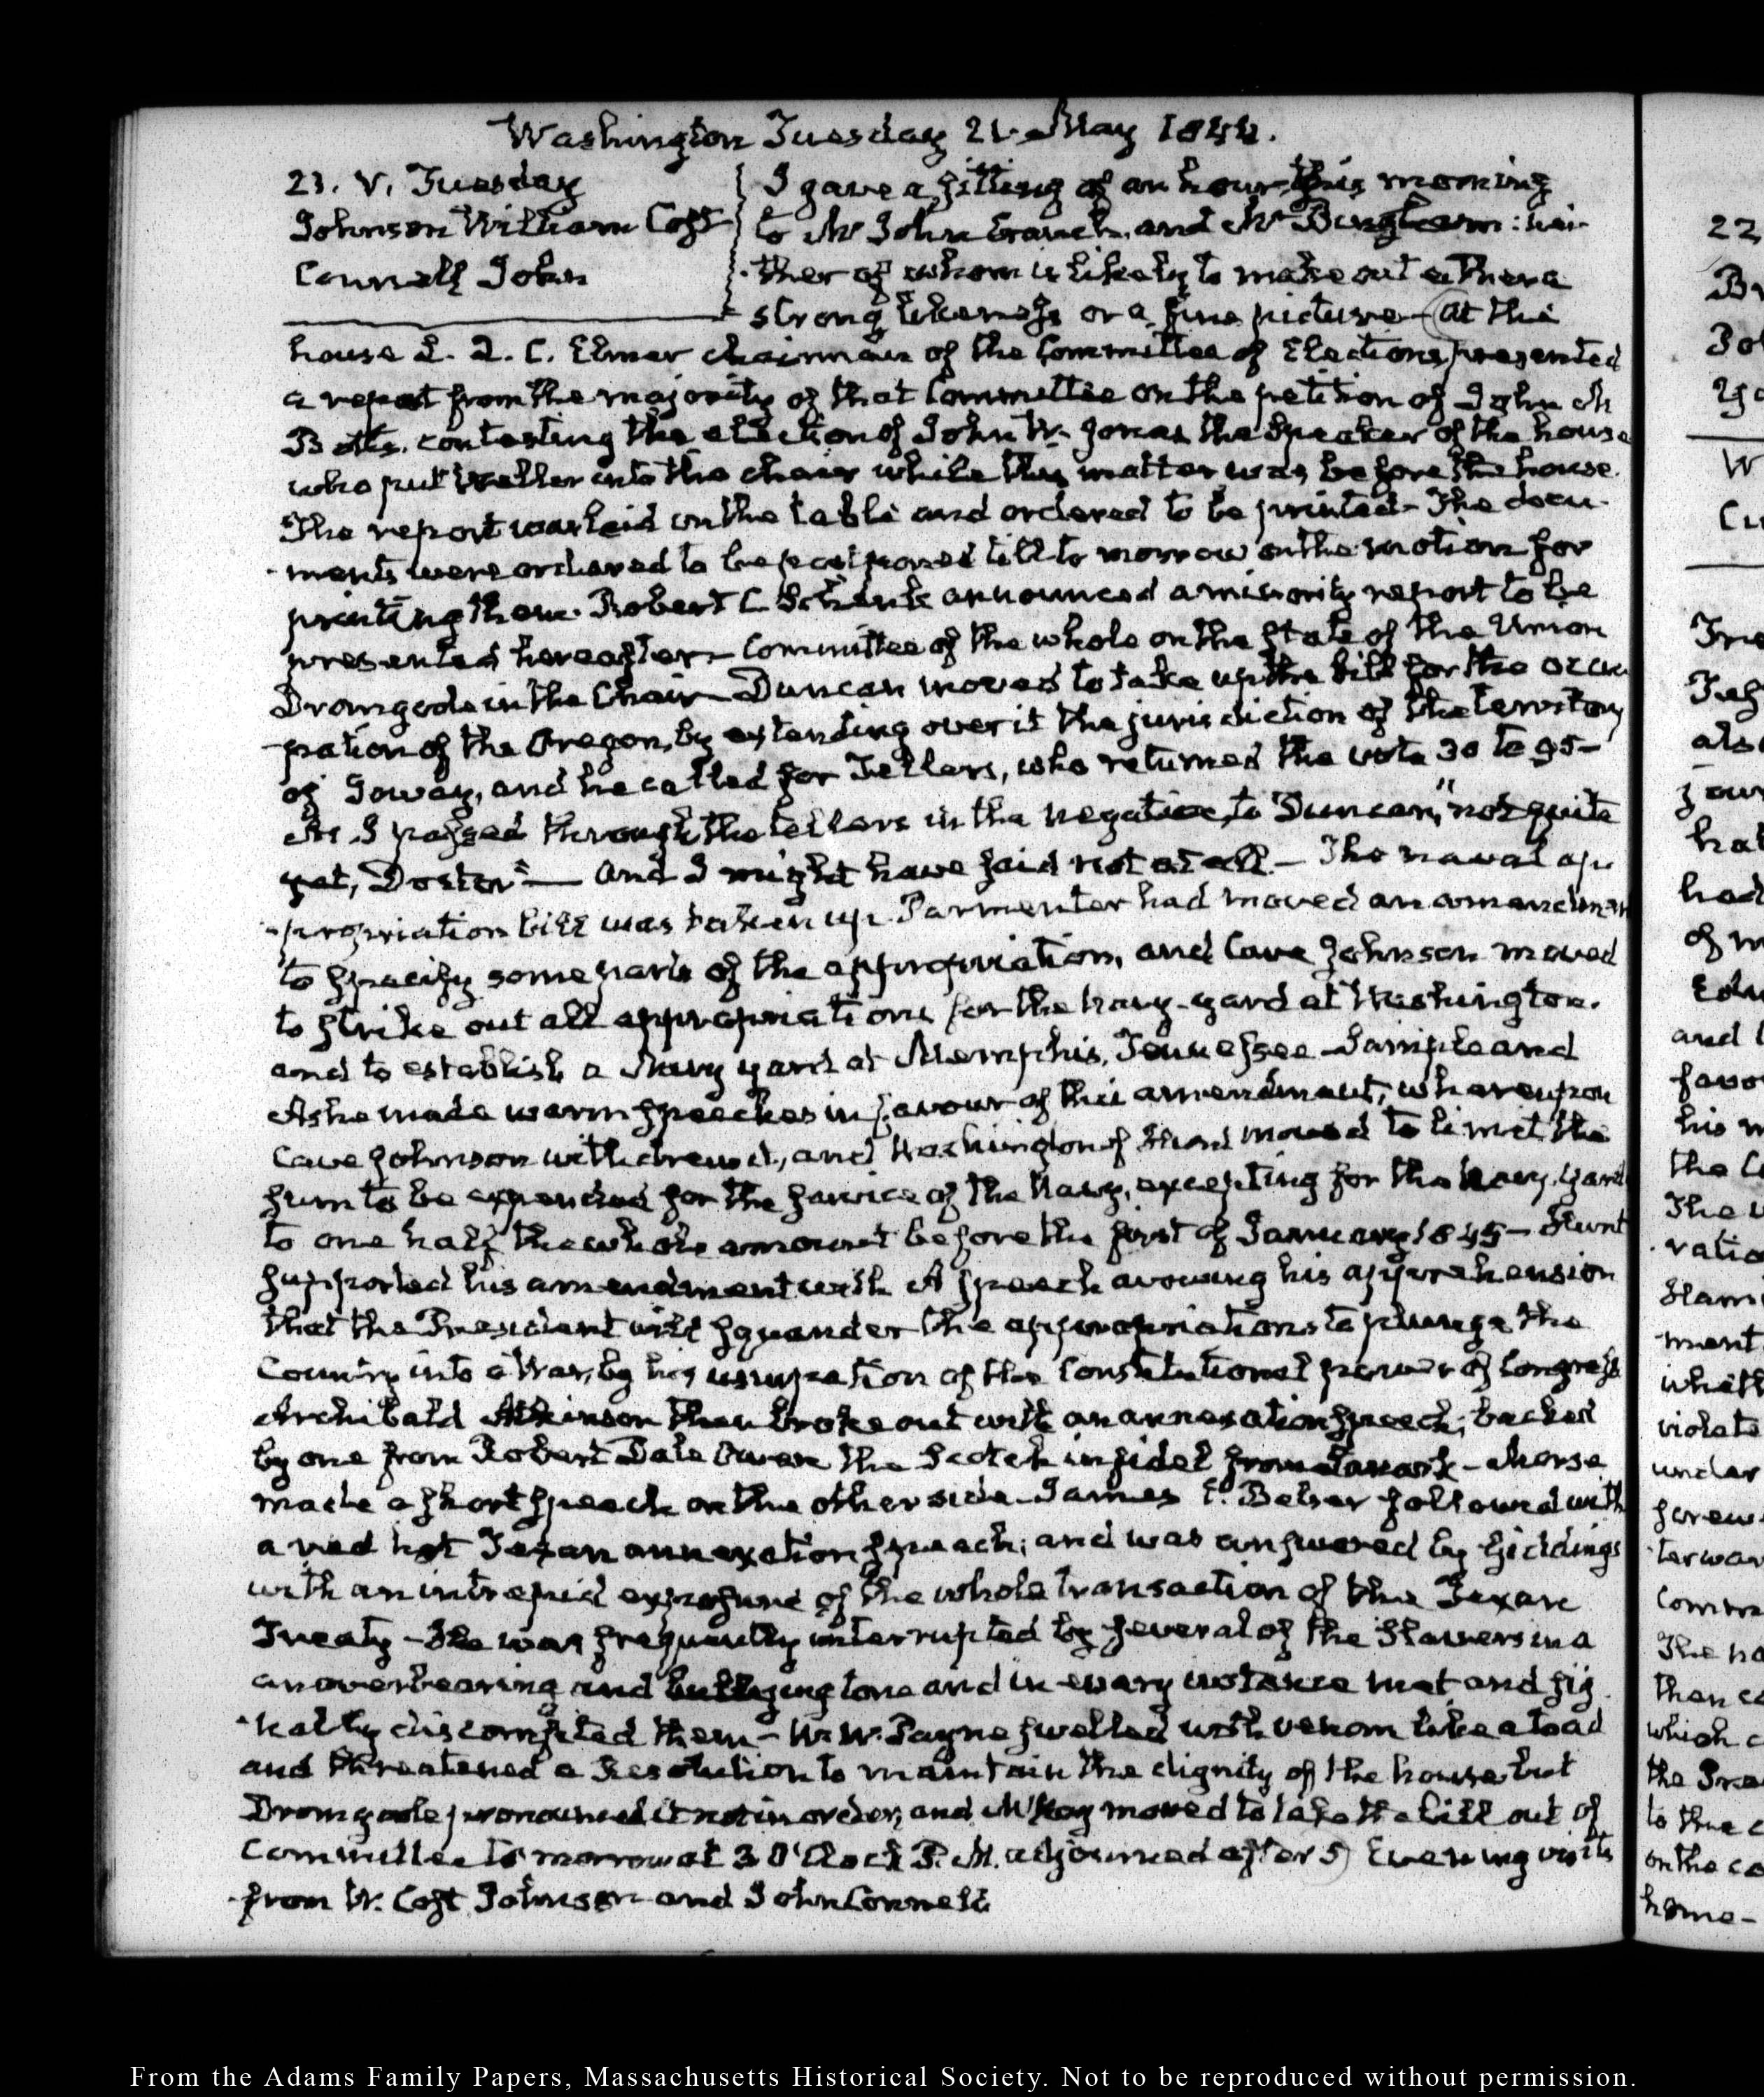 Washington Tuesday 21. May 1844.
23. V. Tuesday
Johnson William Cost
Connell John
I gave a sitting of an hour this morning
to Mr John Cranch, and Mr Bingham: nei-
-ther of whom is likely to make out either a
strong likeness or a fine picture— At the
house L. Q. C. Elmer chairman of the Committee of Elections, presented
a report from the majority of that Committee on the petition of John M
Botts, contesting the election of John W. Jones, the Speaker of the house
who put Weller into the chair while this matter was before the house.
The report was laid on the table and ordered to be printed— The docu-
-ments were ordered to be postponed till to morrow on the motion for
printing them. Robert C. Schenck announced a minority report to be
presented hereafter— Committee of the whole on the State of the Union
Dromgoole in the Chair— Duncan moved to take up the bill for the occu
-pation of the Oregon, by extending over it the jurisdiction of the territory
of Ioway, and he called for Tellers, who returned the vote 30 to 95—
As I passed through the tellers in the negative, to Duncan, "not quite
yet, Doctor"— and I might have said not at all.— The naval ap
-propriation bill was taken up. Parmenter had moved an amendment
to specify some parts of the appropriation, and Cave Johnson moved
to strike out all appropriations for the navy-yard at Washington.
and to establish a Navy yard at Memphis, Tennessee— Sample and
Ashe made warm speeches in favour of this amendment, whereupon
Cave Johnson withdrew it, and Washington Hunt moved to limit the
sum to be expended for the service of the Navy, excepting for the Navy-Yard
to one half the whole amount before the first of January 1845— Hunt
supported his amendment with a speech avowing his apprehension
that the President will squander the appropriations to plunge the
Country into a War, by his usurpation of the Constitutional power of Congress
Archibald Atkinson then broke out with an annexation speech; backed
by one from Robert Dale Owen the Scotch infidel from Lanark— Morse
made a short speech on the other side— James E. Belser followed with
a red hot Texan annexation speech; and was answered by Giddings
with an intrepid exposure of the whole transaction of the Texan
Treaty— He was frequently interrupted by several of the Slavers in a
an overbearing and bullying tone and in every instance met and sig
-nally discomfited them— W. W. Payne swelled with venom like a toad
and threatened a Resolution to maintain the dignity of the house but
Dromgoole pronounced it not in order, and McKay moved to take the bill out of
Committee to morrow at 2 O'Clock P. M. adjourned after 5) Evening visits
from W. Cost Johnson and John Connell
From the Adams Family Papers, Massachusetts Historical Society. Not to be reproduced without permission.